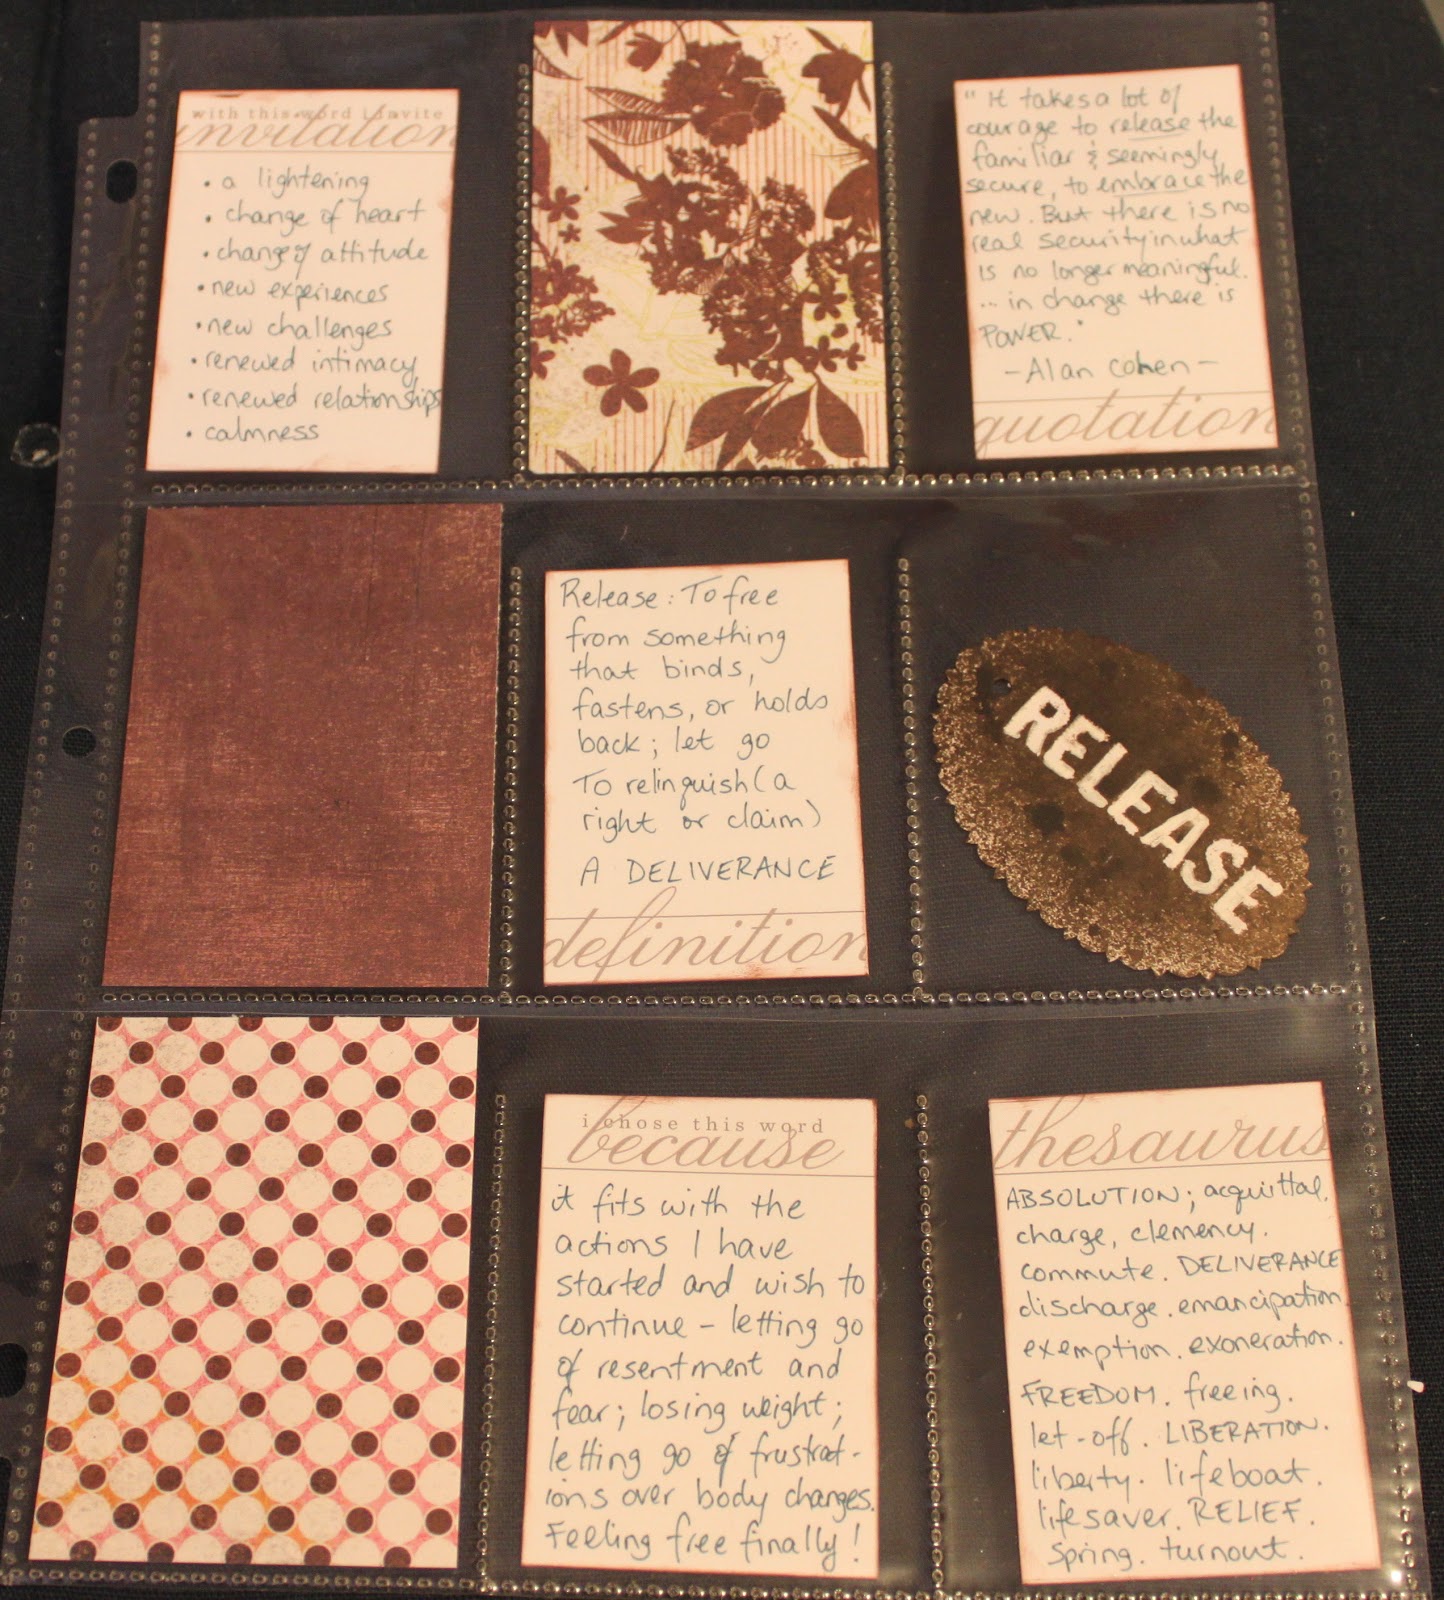 with this word i invite
invitation
• a lightening
• change of heart
• change of attitude
• new experiences
• new challenges
• renewed intimacy
• renewed relationships
• calmness
" It takes a lot of
courage to release the
familiar & seemingly
secure, to embrace the
new. But there is no
real security in what
is no longer meaningful.
... in change there is
POWER."
- Alan Cohen -
quotation
Release: To free
from something
that binds,
fastens, or holds
back; let go
To relinquish (a
right or claim)
A DELIVERANCE
definition
RELEASE
i chose this word
because
it fits with the
actions I have
started and wish to
continue - letting go
of resentment and
fear; losing weight;
letting go of frustrat-
ions over body changes.
Feeling free finally!
thesaurus
ABSOLUTION; acquittal.
charge, clemency.
commute. DELIVERANCE
discharge. emancipation.
exemption. exoneration.
FREEDOM. freeing.
let-off. LIBERATION.
liberty. lifeboat.
lifesaver. RELIEF.
spring. turnout.